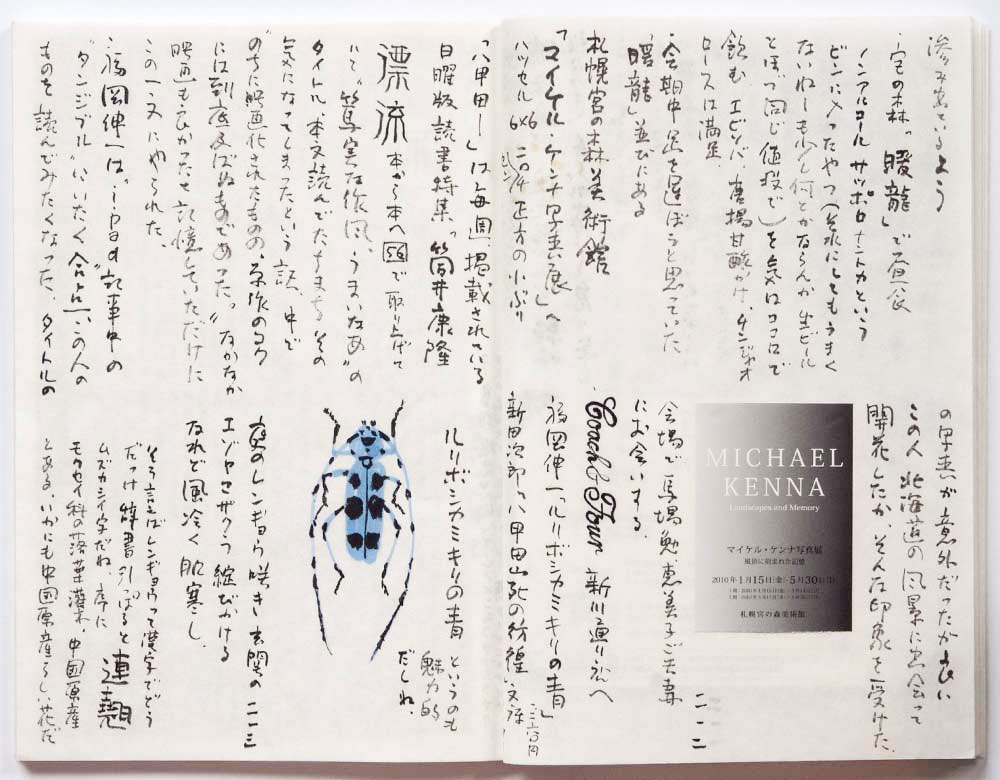 滲みあているよう
・宮の森「暖龍」で昼食
ノンアルコール サッポロナントカという
ビンに入ったやつ(それにしてもうまく
ないねーも少し何とかならんか生ビール
とほゞ同じ値段で)を気はココロで
飲む エビソバ、唐揚甘酢かけ、ケンジャオ
ロースは満足
・会期中足を運ぼうと思っていた
「暖龍」並びにある
札幌宮の森美術館
「マイケル・ケンナ写真展」へ
ハッセル6×6 二〇/4 正方の小ぶり
の写真が意外だったが良い
この人 北海道の風景に出会って
開花したか そんな印象を受けた
MICHAEL
KENNA
Landscapes and Memory
マイケル・ケンナ写真展
風景に刻まれた記憶
2010年1月15日(金)-5月30日(日)
札幌宮の森美術館
会場で馬場勉・恵美子ご夫妻
にお会いする
Coach & Four 新川通り店へ
福岡伸一「ルリボシカミキリの青」
新田次郎「八甲田山死の彷徨」文庫
「八甲田ー」は毎週掲載されている
日曜版読書特集「筒井康隆
漂流 本から本へ 56 で取り上げて
いて“篤実な作風、うまいなあ”の
タイトル、本文読んでたちまちその
気になってしまったという訳、中で
“のちに映画化されたものの、原作のコク
には到底及ばぬものであった。”なかなか
映画も良かったと記憶していただけに
この一文にやられた。
・福岡伸一は、記事中の
“タンジブル”にいたく合点、この人の
ものを読んでみたくなった、タイトルの
ルリボシカミキリの青
というのも
魅力的
だしね、
二・一・二
二・一・三
庭のレンギョウ咲き 玄関の
エゾヤマザクラ 綻びかける
なれど風冷く 肌寒し
そう言えばレンギョウって漢字でどう
だっけ 辞書引っぱると 連翹
ムズカシイ字だね、序に
モクセイ科の落葉灌木、中国原産
とある、いかにも中国原産らしい花だ